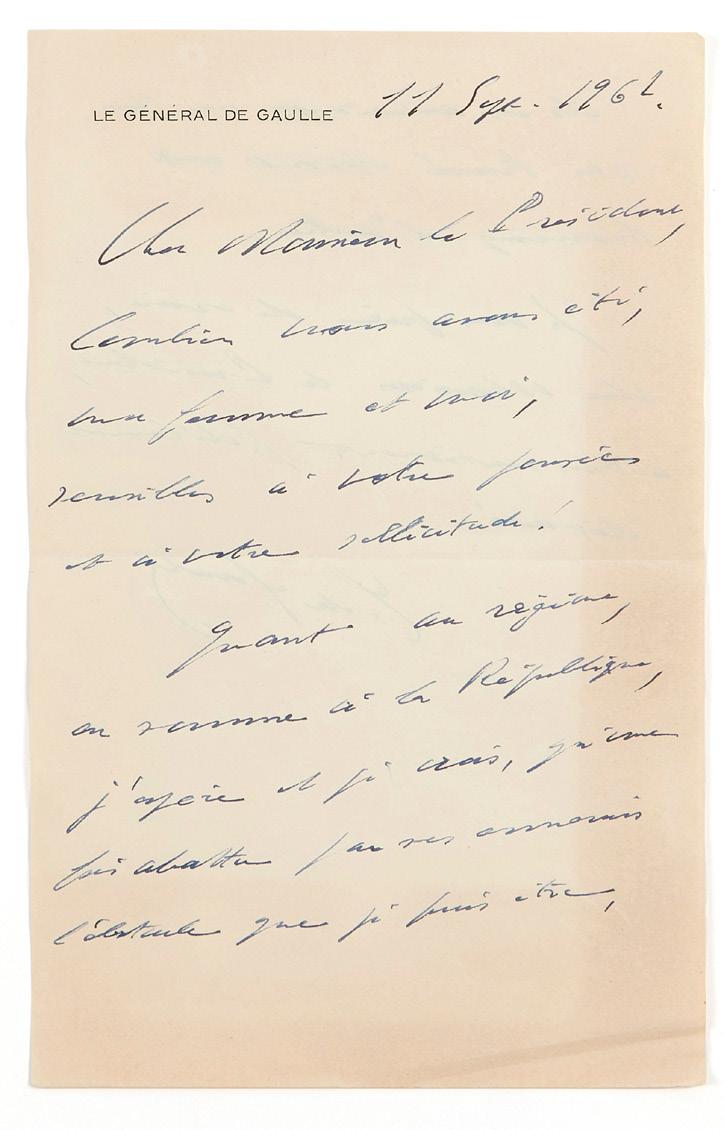 LE GÉNÉRAL DE GAULLE
11 Sept. 1961.
Cher Monsieur le Président,
Combien nous avons été,
ma femme et moi,
sensibles à votre pensée
et à votre sollicitude !
Quant au régime,
en somme à la République,
j'espère et je crois, qu'une
fois abattu par ses ennemis
l'obstacle que je puis être,